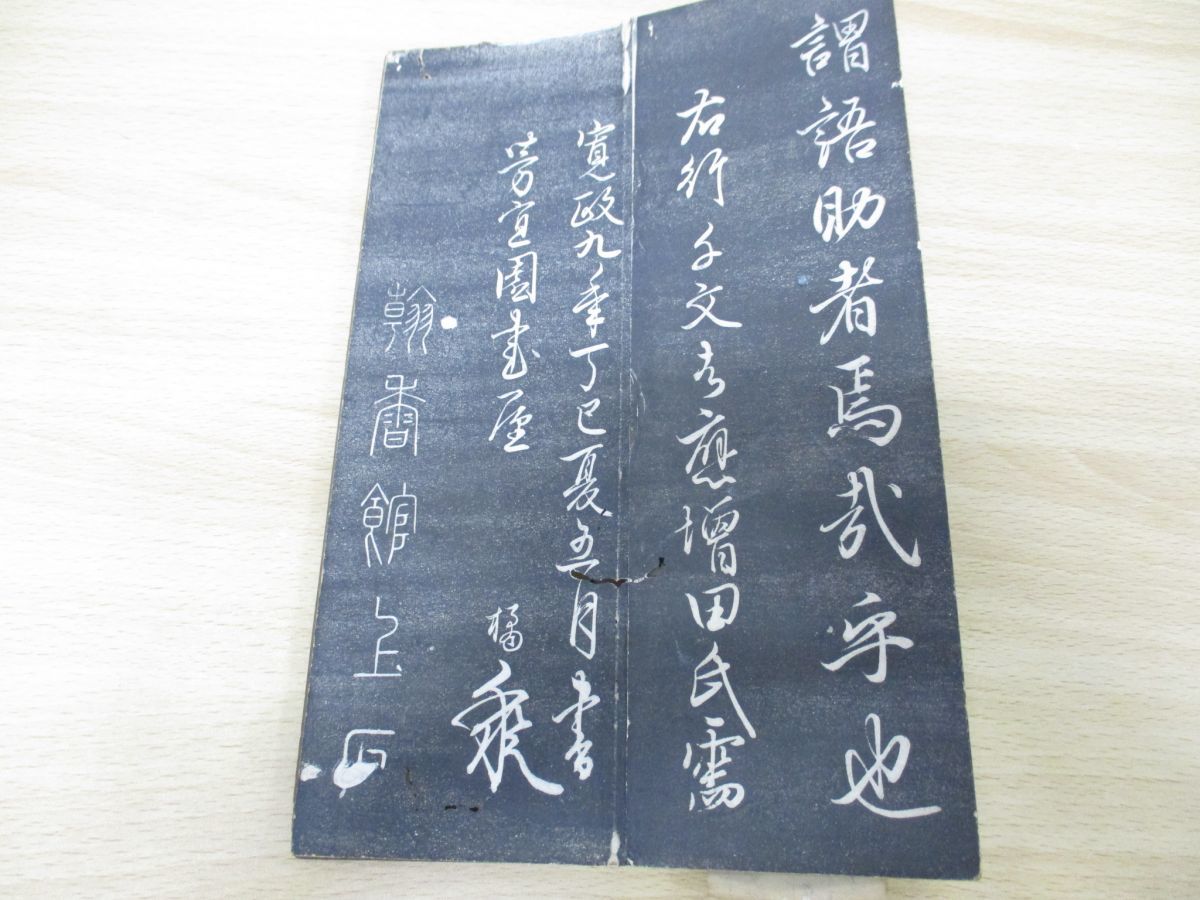 謂語助者焉哉乎也
右行千文者應增田氏需
寬政九年丁巳夏五月書
芳宜園書屋
橘
翰香館上石